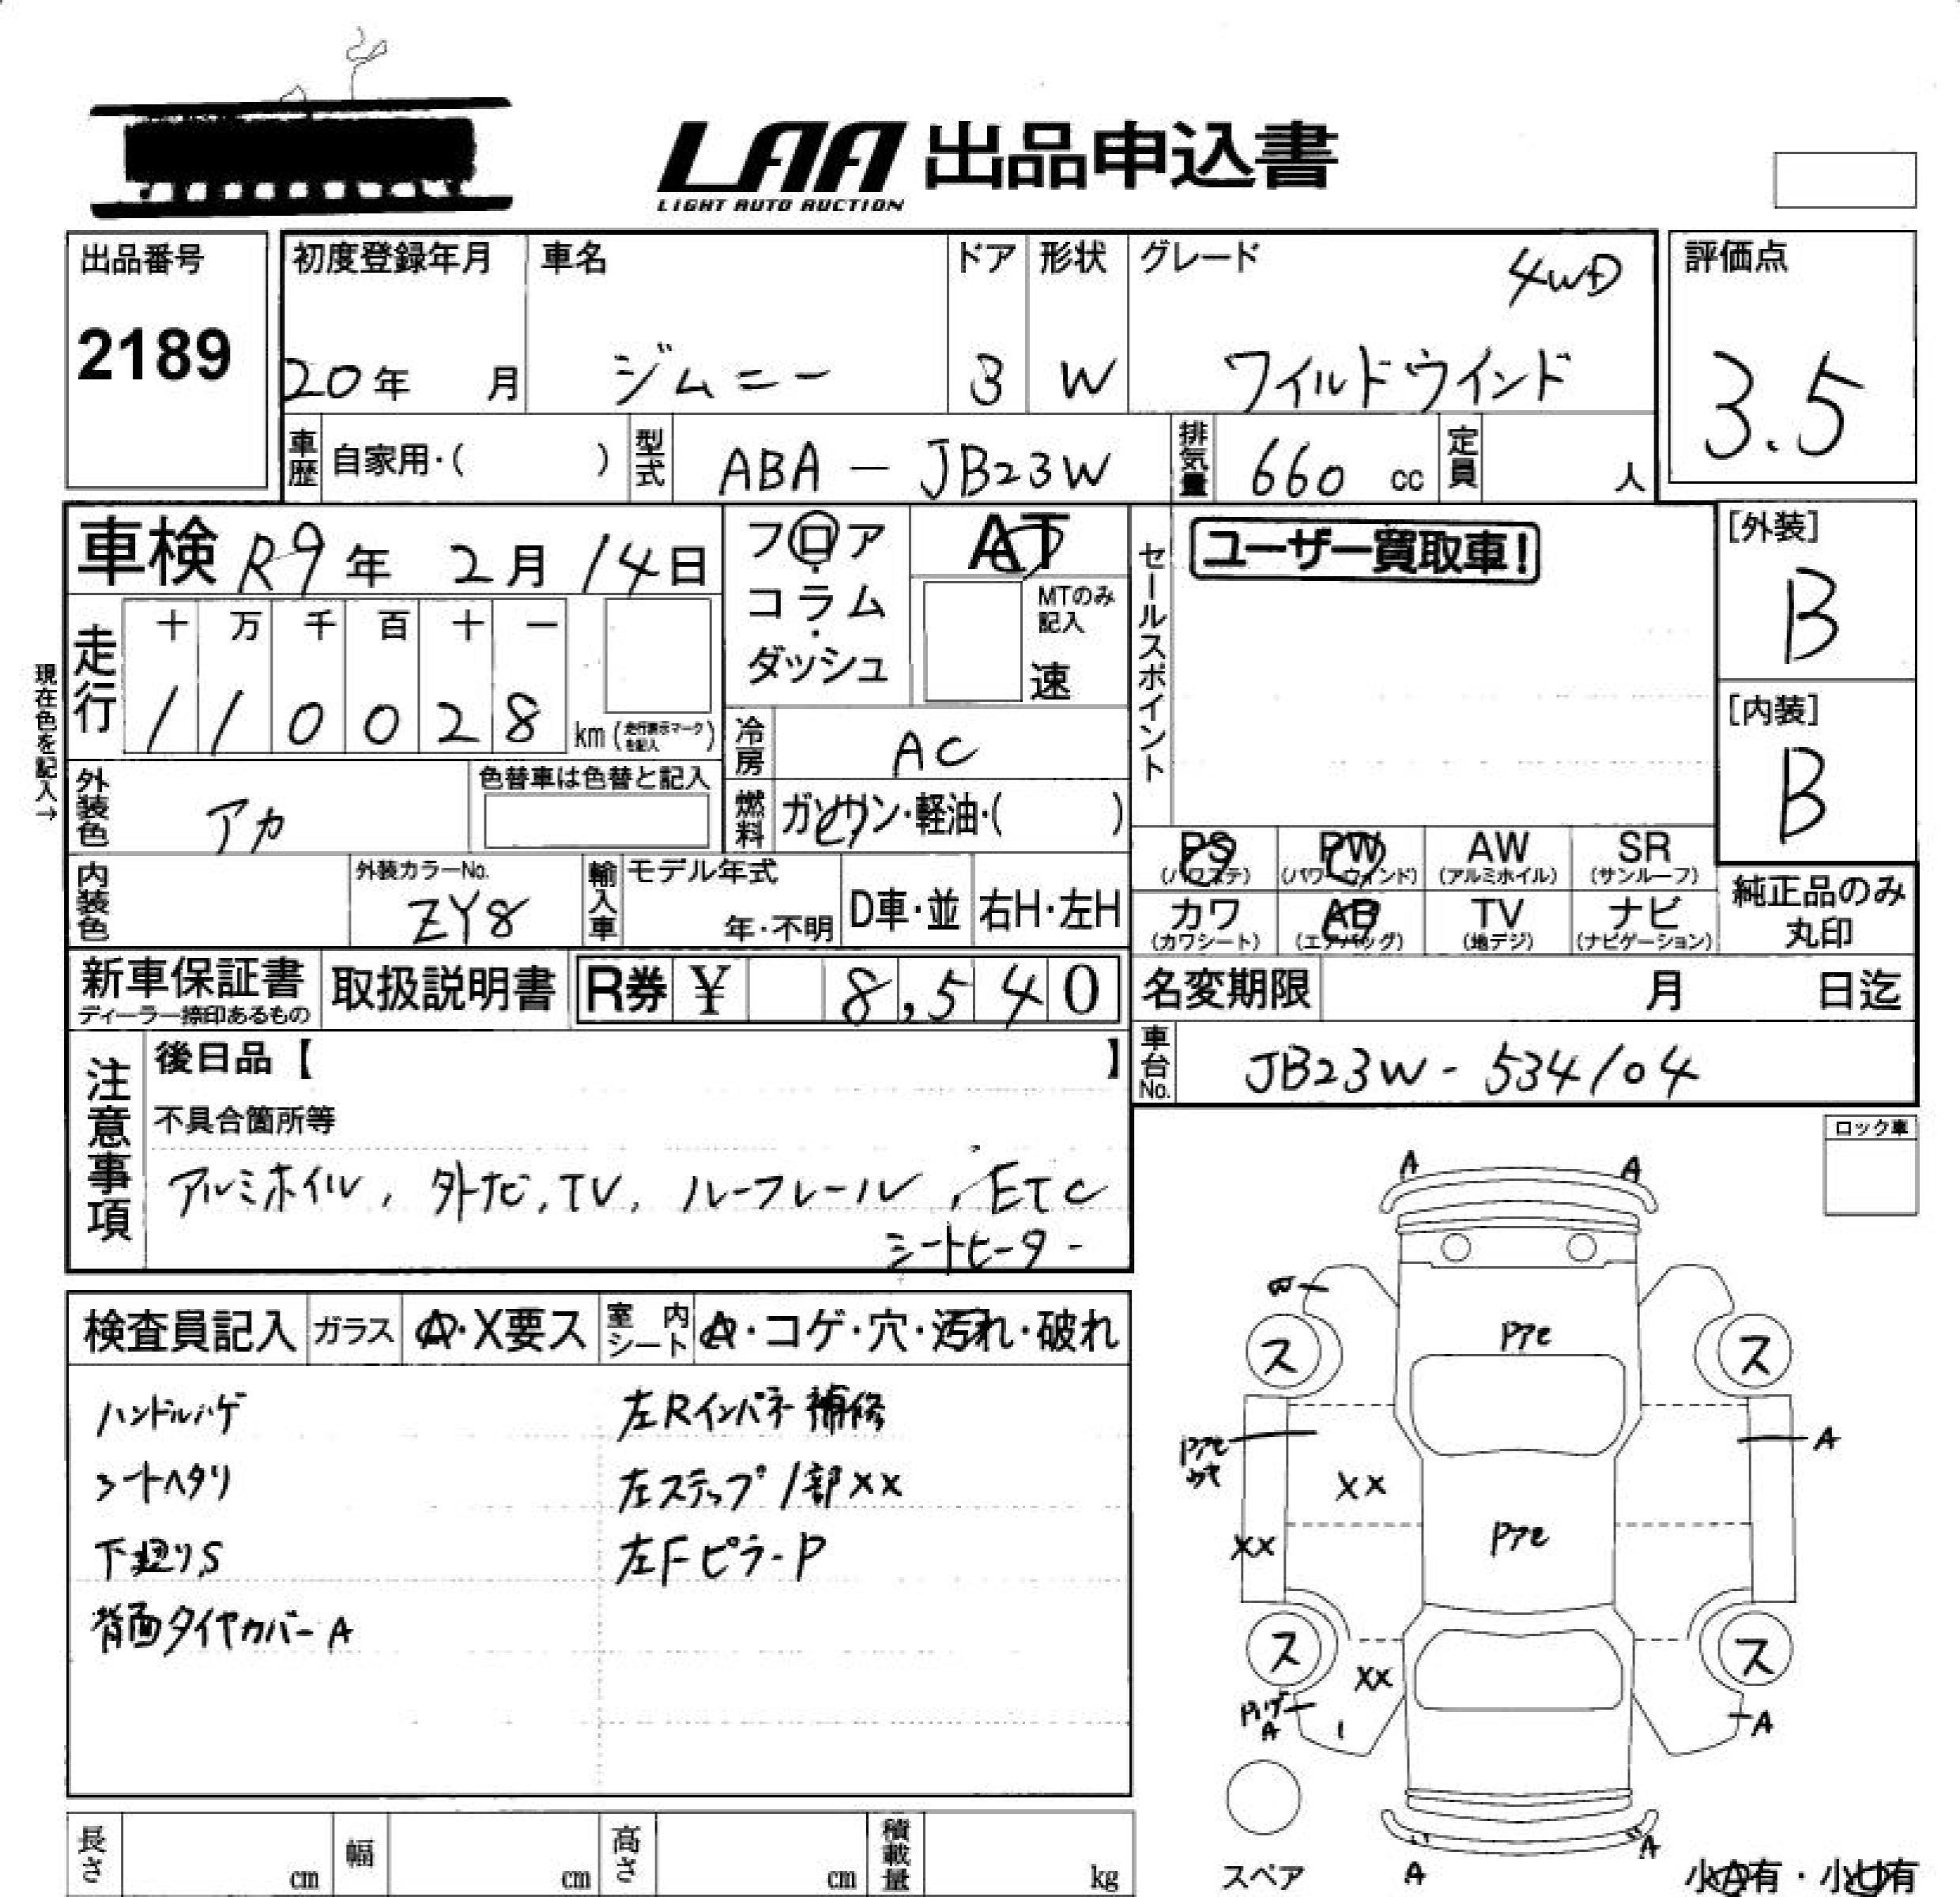 LAA 出品申込書
LIGHT AUTO AUCTION
出品番号
2189
初度登録年月
20年 月
車名
ジムニー
ドア
3
形状
W
グレード
4WD
ワイルドウインド
評価点
3.5
車歴 自家用・( )
型式 ABA - JB23W
排気量 660 cc
定員 人
車検 R9年 2月 14日
フロア・コラム・ダッシュ
AT
MTのみ記入
速
セールスポイント
ユーザー買取車!
[外装]
B
[内装]
B
現在色を記入→
走行
十 万 千 百 十 一
1 1 0 0 2 8 km (走行表示マークを記入)
冷房 AC
燃料 ガソリン・軽油・( )
外装色 アカ
色替車は色替と記入
内装色
外装カラーNo.
ZY8
輸入車 モデル年式
年・不明
D車・並 右H・左H
PS (パワステ) PW (パワーウインド) AW (アルミホイル) SR (サンルーフ)
カワ (カワシート) AB (エアバッグ) TV (地デジ) ナビ (ナビゲーション)
純正品のみ
丸印
新車保証書
ディーラー捺印あるもの
取扱説明書
R券 ¥ 8,540
名変期限 月 日迄
車台No. JB23W - 534104
注意事項
後日品【 】
不具合箇所等
アルミホイル, 外ナビ, TV, ルーフレール, ETC
シートヒーター
ロック車
検査員記入 ガラス A・X要ス 室内シート A・コゲ・穴・汚れ・破れ
ハンドルハゲ
シートヘタリ
下廻りS
背面タイヤカバーA
左Rインパネ補修
左ステップ1部XX
左FピラーP
A A
W
ス ス
A
XX
XX
ス ス
XX
A
A
1
A
A
スペア
小A有・小U有
長さ cm
幅 cm
高さ cm
積載量 kg